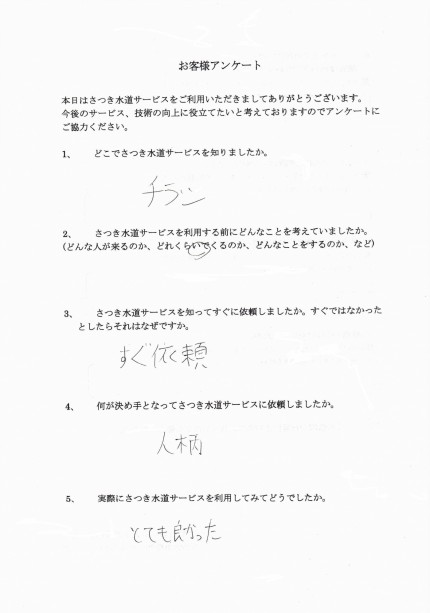 お客様アンケート
本日はさつき水道サービスをご利用いただきましてありがとうございます。
今後のサービス、技術の向上に役立てたいと考えておりますのでアンケートに
ご協力ください。
1、 どこでさつき水道サービスを知りましたか。
チラシ
2、 さつき水道サービスを利用する前にどんなことを考えていましたか。
(どんな人が来るのか、どれくらいでくるのか、どんなことをするのか、など)
3、 さつき水道サービスを知ってすぐに依頼しましたか。すぐではなかった
としたらそれはなぜですか。
すぐ依頼
4、 何が決め手となってさつき水道サービスに依頼しましたか。
人柄
5、 実際にさつき水道サービスを利用してみてどうでしたか。
とても良かった